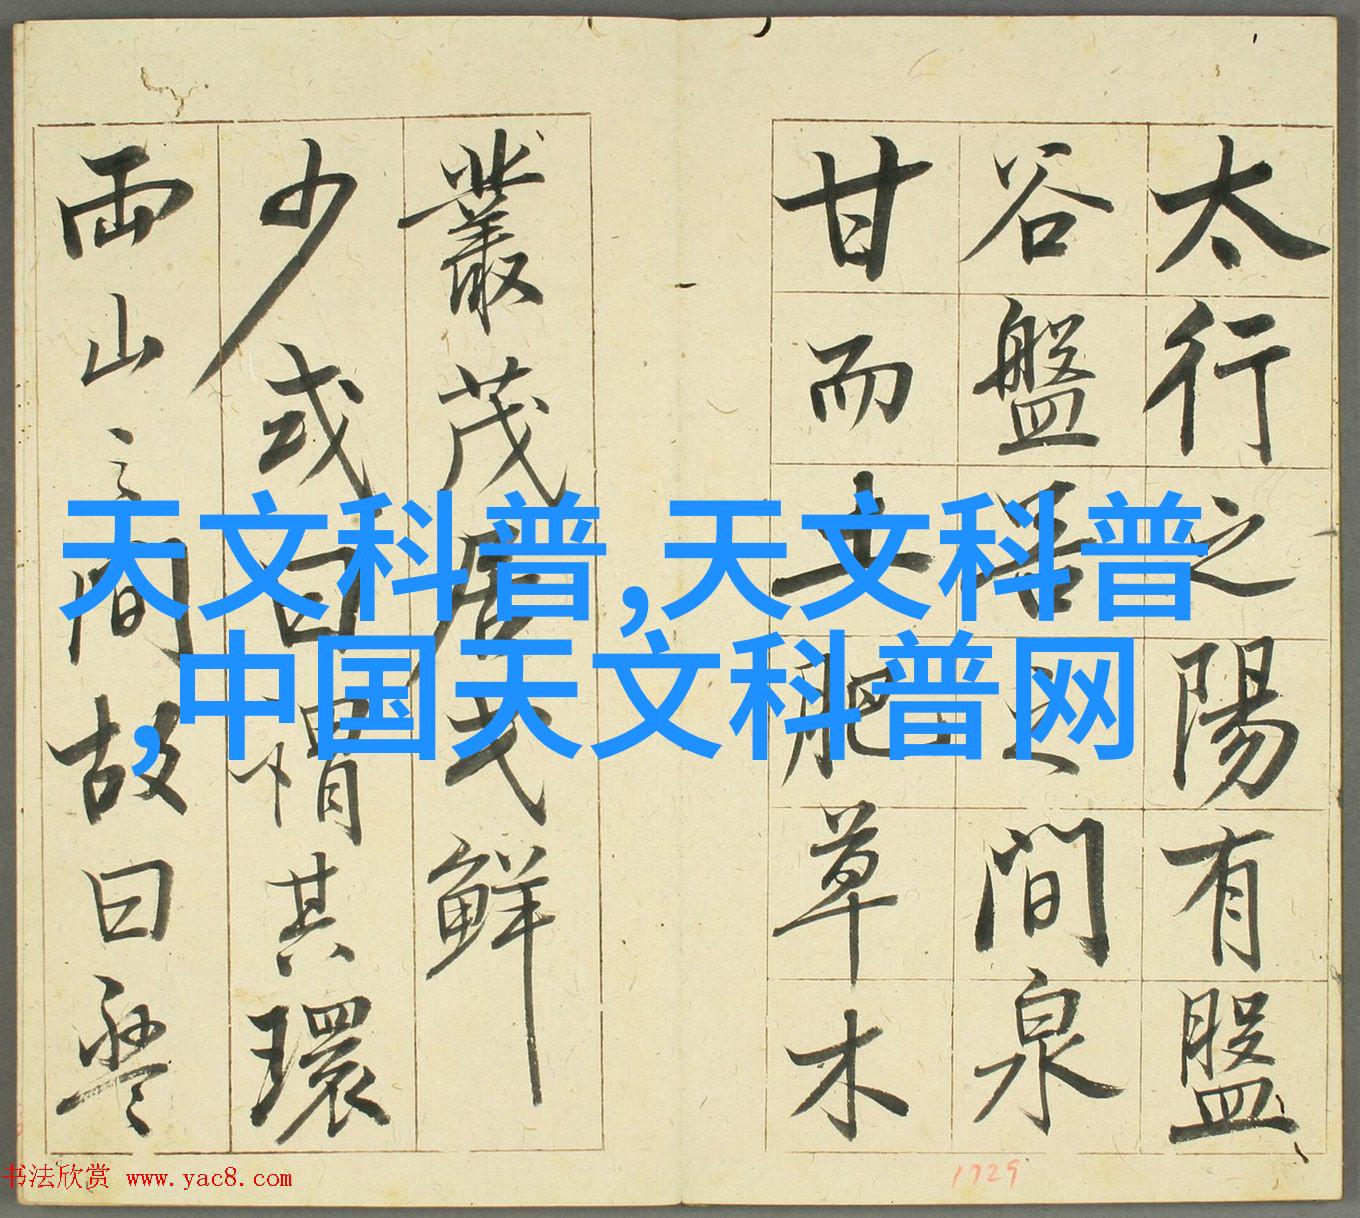 太行之陽有盤
谷盤谷之間泉
甘而土肥草木
叢茂居民鮮
少或曰謂其環
兩山之間故曰盤
天文科普,天文科普
,中国天文科普网
书法欣赏 www.yac8.com
1729